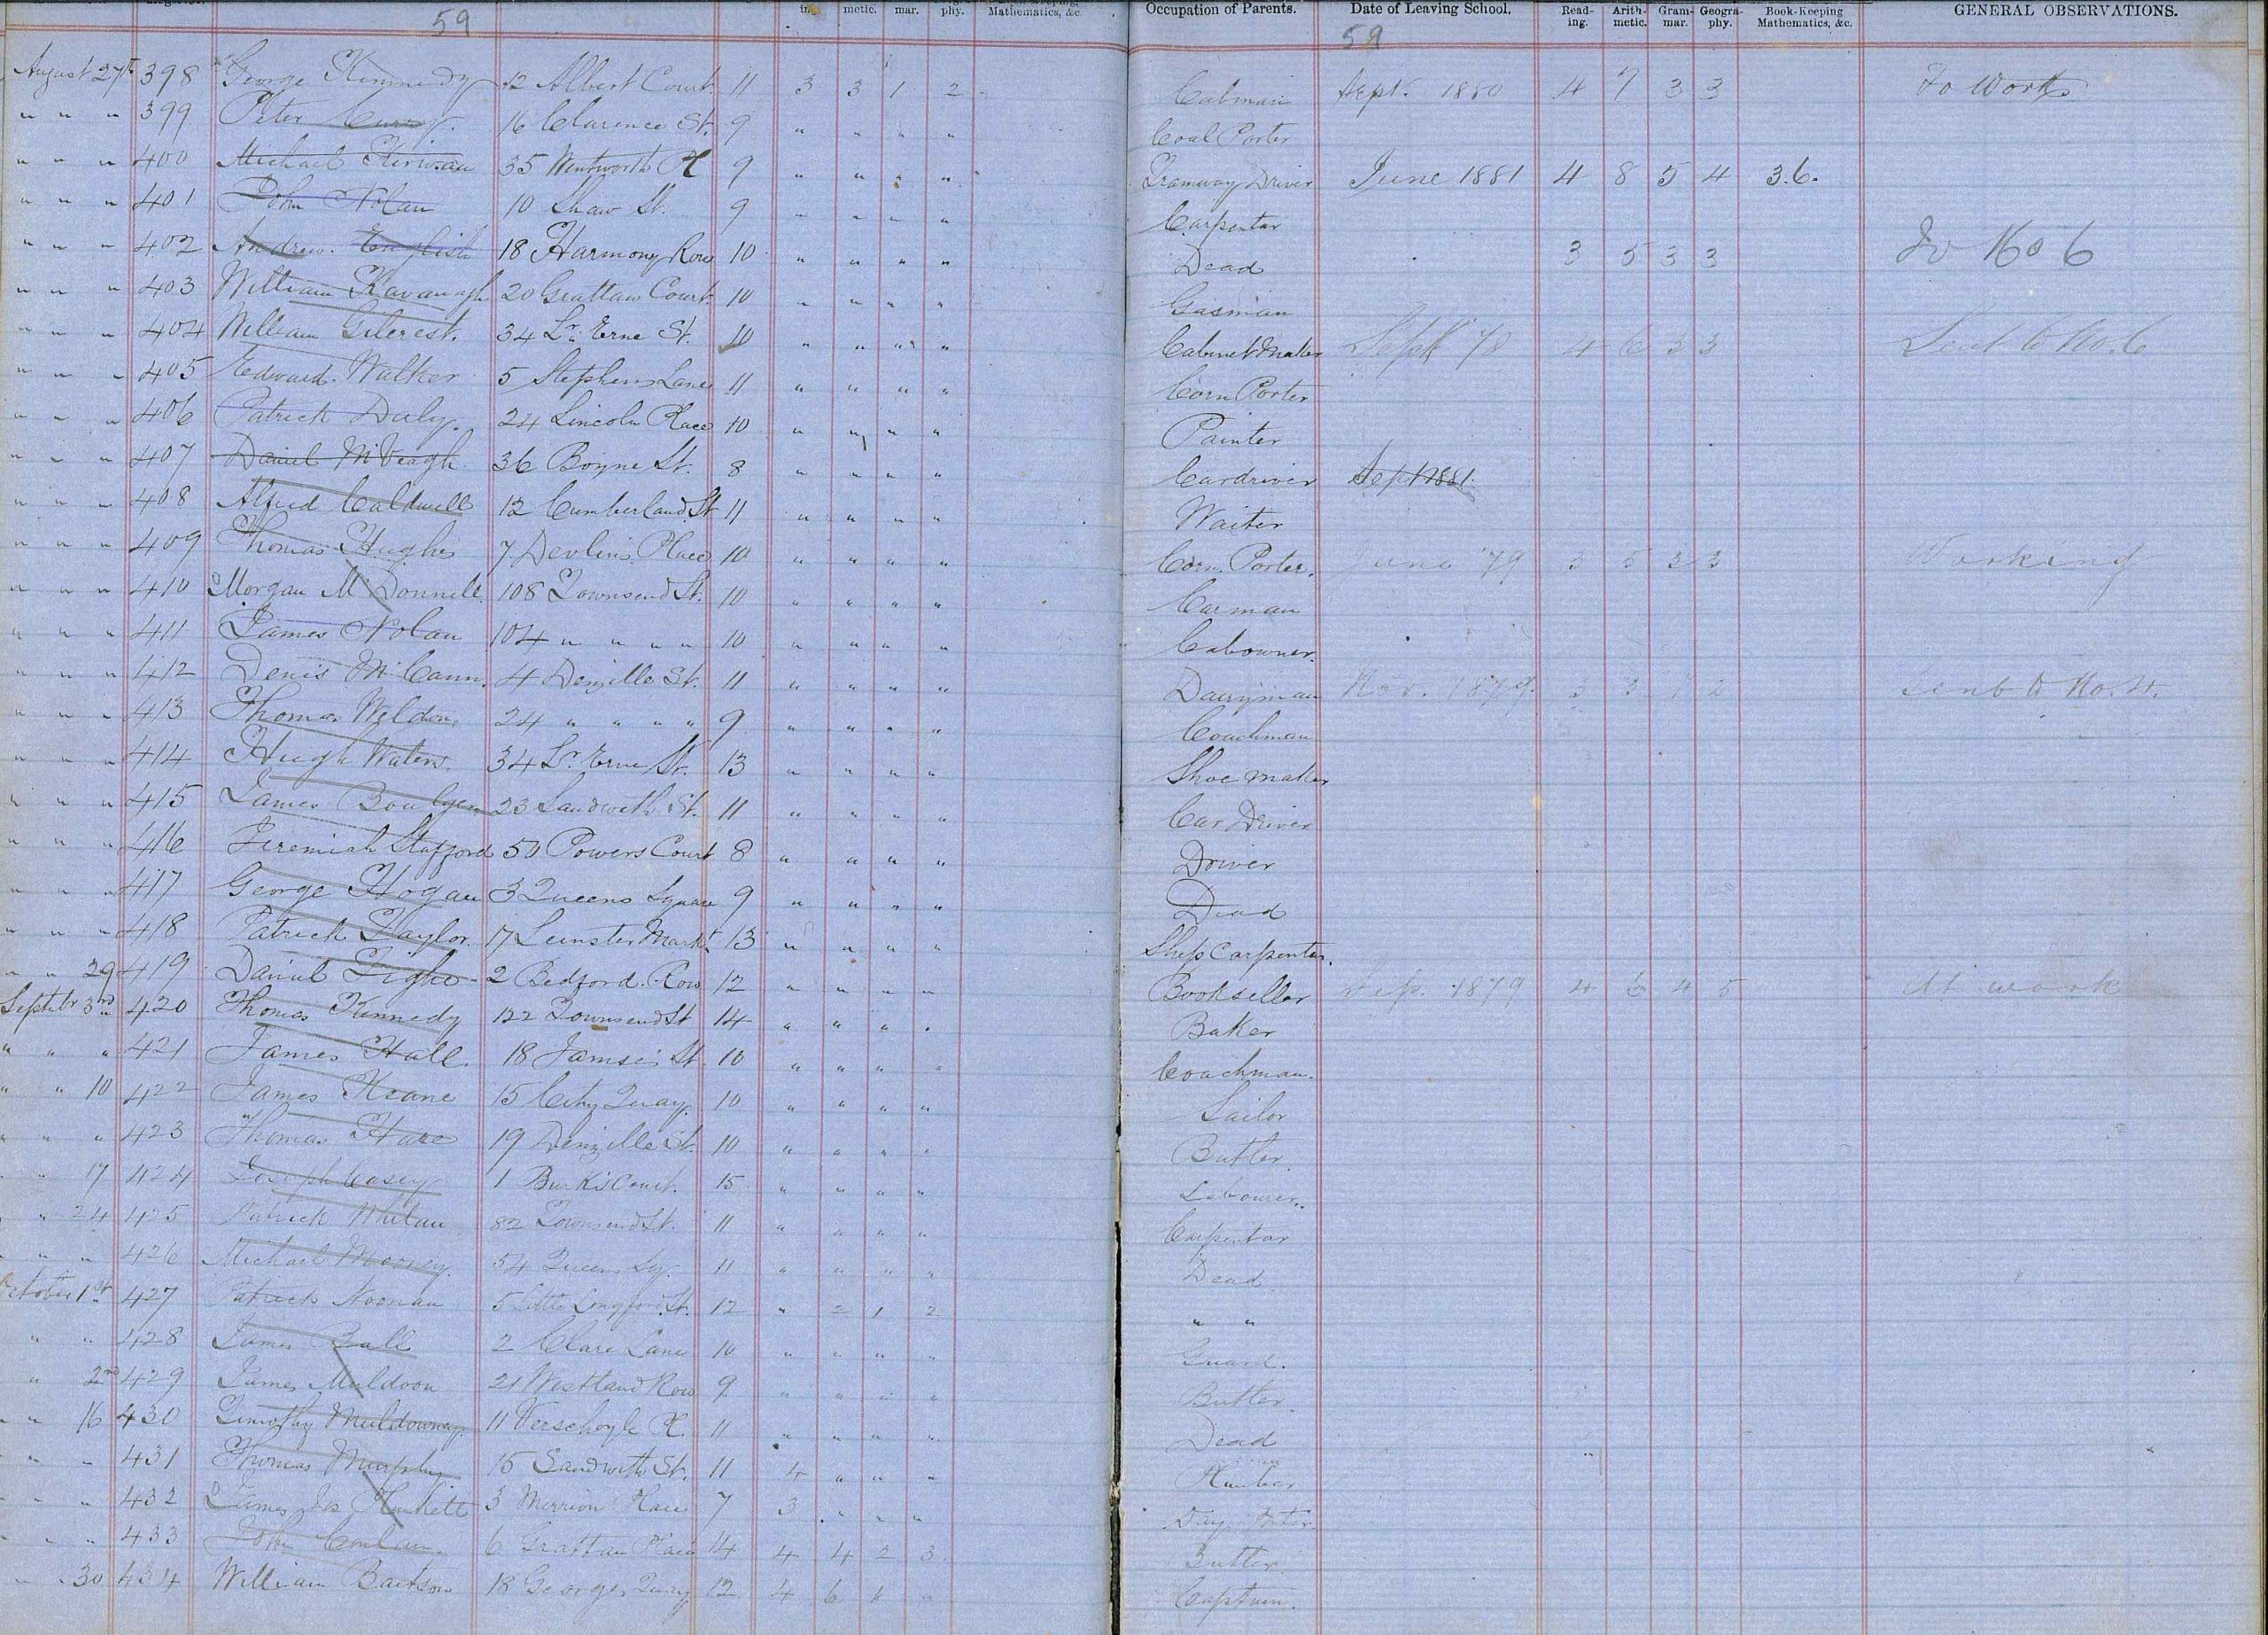 59
Mathematics, &c.
Occupation of Parents. Date of Leaving School. Read-ing. Arith-metic. Gram-mar. Geogra-phy. Book-Keeping Mathematics, &c. GENERAL OBSERVATIONS.
59
August 27th 398 George Kennedy 12 Albert Court 11 3 3 1 2 Cabman Sept. 1880 4 7 3 3 To Work
" " " 399 Peter Curry. 16 Clarence St. 9 " " " " Coal Porter
" " " 400 Michael Kirwan 35 Wentworth Pl 9 " " " " Tramway Driver June 1881 4 8 5 4 3.6.
" " " 401 John Nolan 10 Shaw St. 9 " " " " Carpenter
" " " 402 Andrew English 18 Harmony Row 10 " " " " Dead 3 5 3 3 To No 6
" " " 403 William Kavanagh 20 Grattan Court 10 " " " " Gasman
" " " 404 William Gilcrest. 34 Lr. Erne St. 10 " " " " Cabinet Maker Sept 78 4 6 3 3 Sent to No. 6
" " " 405 Edward Walker 5 Stephens Lane 11 " " " " Corn Porter
" " " 406 Patrick Daly. 24 Lincoln Place 10 " " " " Painter
" " " 407 Daniel McVeagh 36 Boyne St. 8 " " " " Cardriver Sept 1881.
" " " 408 Alfred Caldwell 12 Cumberland St 11 " " " " Waiter
" " " 409 Thomas Hughes 7 Devlins Place 10 " " " " Corn Porter. June '79 3 5 3 3 Working
" " " 410 Morgan McDonnell 108 Townsend St. 10 " " " " Carman
" " " 411 James Nolan 104 " " " " 10 " " " " Cabowner.
" " " 412 Denis McCann. 4 Denzille St. 11 " " " " Dairyman Nov. 1879. 3 3 1 2 sent to No. 4.
" " " 413 Thomas Weldon 24 " " " " 9 " " " " Coachman
" " " 414 Hugh Waters. 34 Lr. Erne St. 13 " " " " Shoe maker
" " " 415 James Boulger 23 Sandwith St. 11 " " " " Car Driver
" " " 416 Jeremiah Stafford 50 Powers Court 8 " " " " Driver
" " " 417 George Hogan 3 Queens Square 9 " " " " Dead
" " " 418 Patrick Taylor. 17 Leinster Markt 13 " " " " Ship Carpenter.
" " 29 419 Daniel Tighe 2 Bedford Row 12 " " " " Bookseller Sep. 1879 4 6 4 5 At work
Septebr 3rd 420 Thomas Kennedy 122 Townsend St 14 " " " " Baker
" " " 421 James Hall. 18 James's St. 10 " " " " Coachman.
" " 10 422 James Keane 15 City Quay. 10 " " " " Sailor
" " " 423 Thomas Hare 19 Denzille St. 10 " " " " Butler.
" 17 424 Joseph Casey 1 Burkes Court. 15 " " " " Labourer.
" 24 425 Patrick Whelan 82 Townsend St. 11 " " " " Carpenter
" " " 426 Michael Mooney. 54 Queens Sq. 11 " " " " Dead
October 1st 427 Patrick Noonan 5 Little Longford St. 12 " 2 1 2 " "
" " 428 James Ball 2 Clare Lane 10 " " " " Guard.
" 2nd 429 James Muldoon 21 Westland Row 9 " " " " Butler.
" 16 430 Timothy Muldowney. 11 Verschoyle Pl. 11 " " " " Dead
" " 431 Thomas Murphy 15 Sandwith St. 11 4 " " " Plumber
" " " 432 James Jos Plunkett 3 Merrion Place 7 3 " " " Porter
" " " 433 John Conlan. 6 Grattan Place 14 4 4 2 3 Butler.
" " 30 434 William 18 Georges Quay 12 4 6 " " Captain.